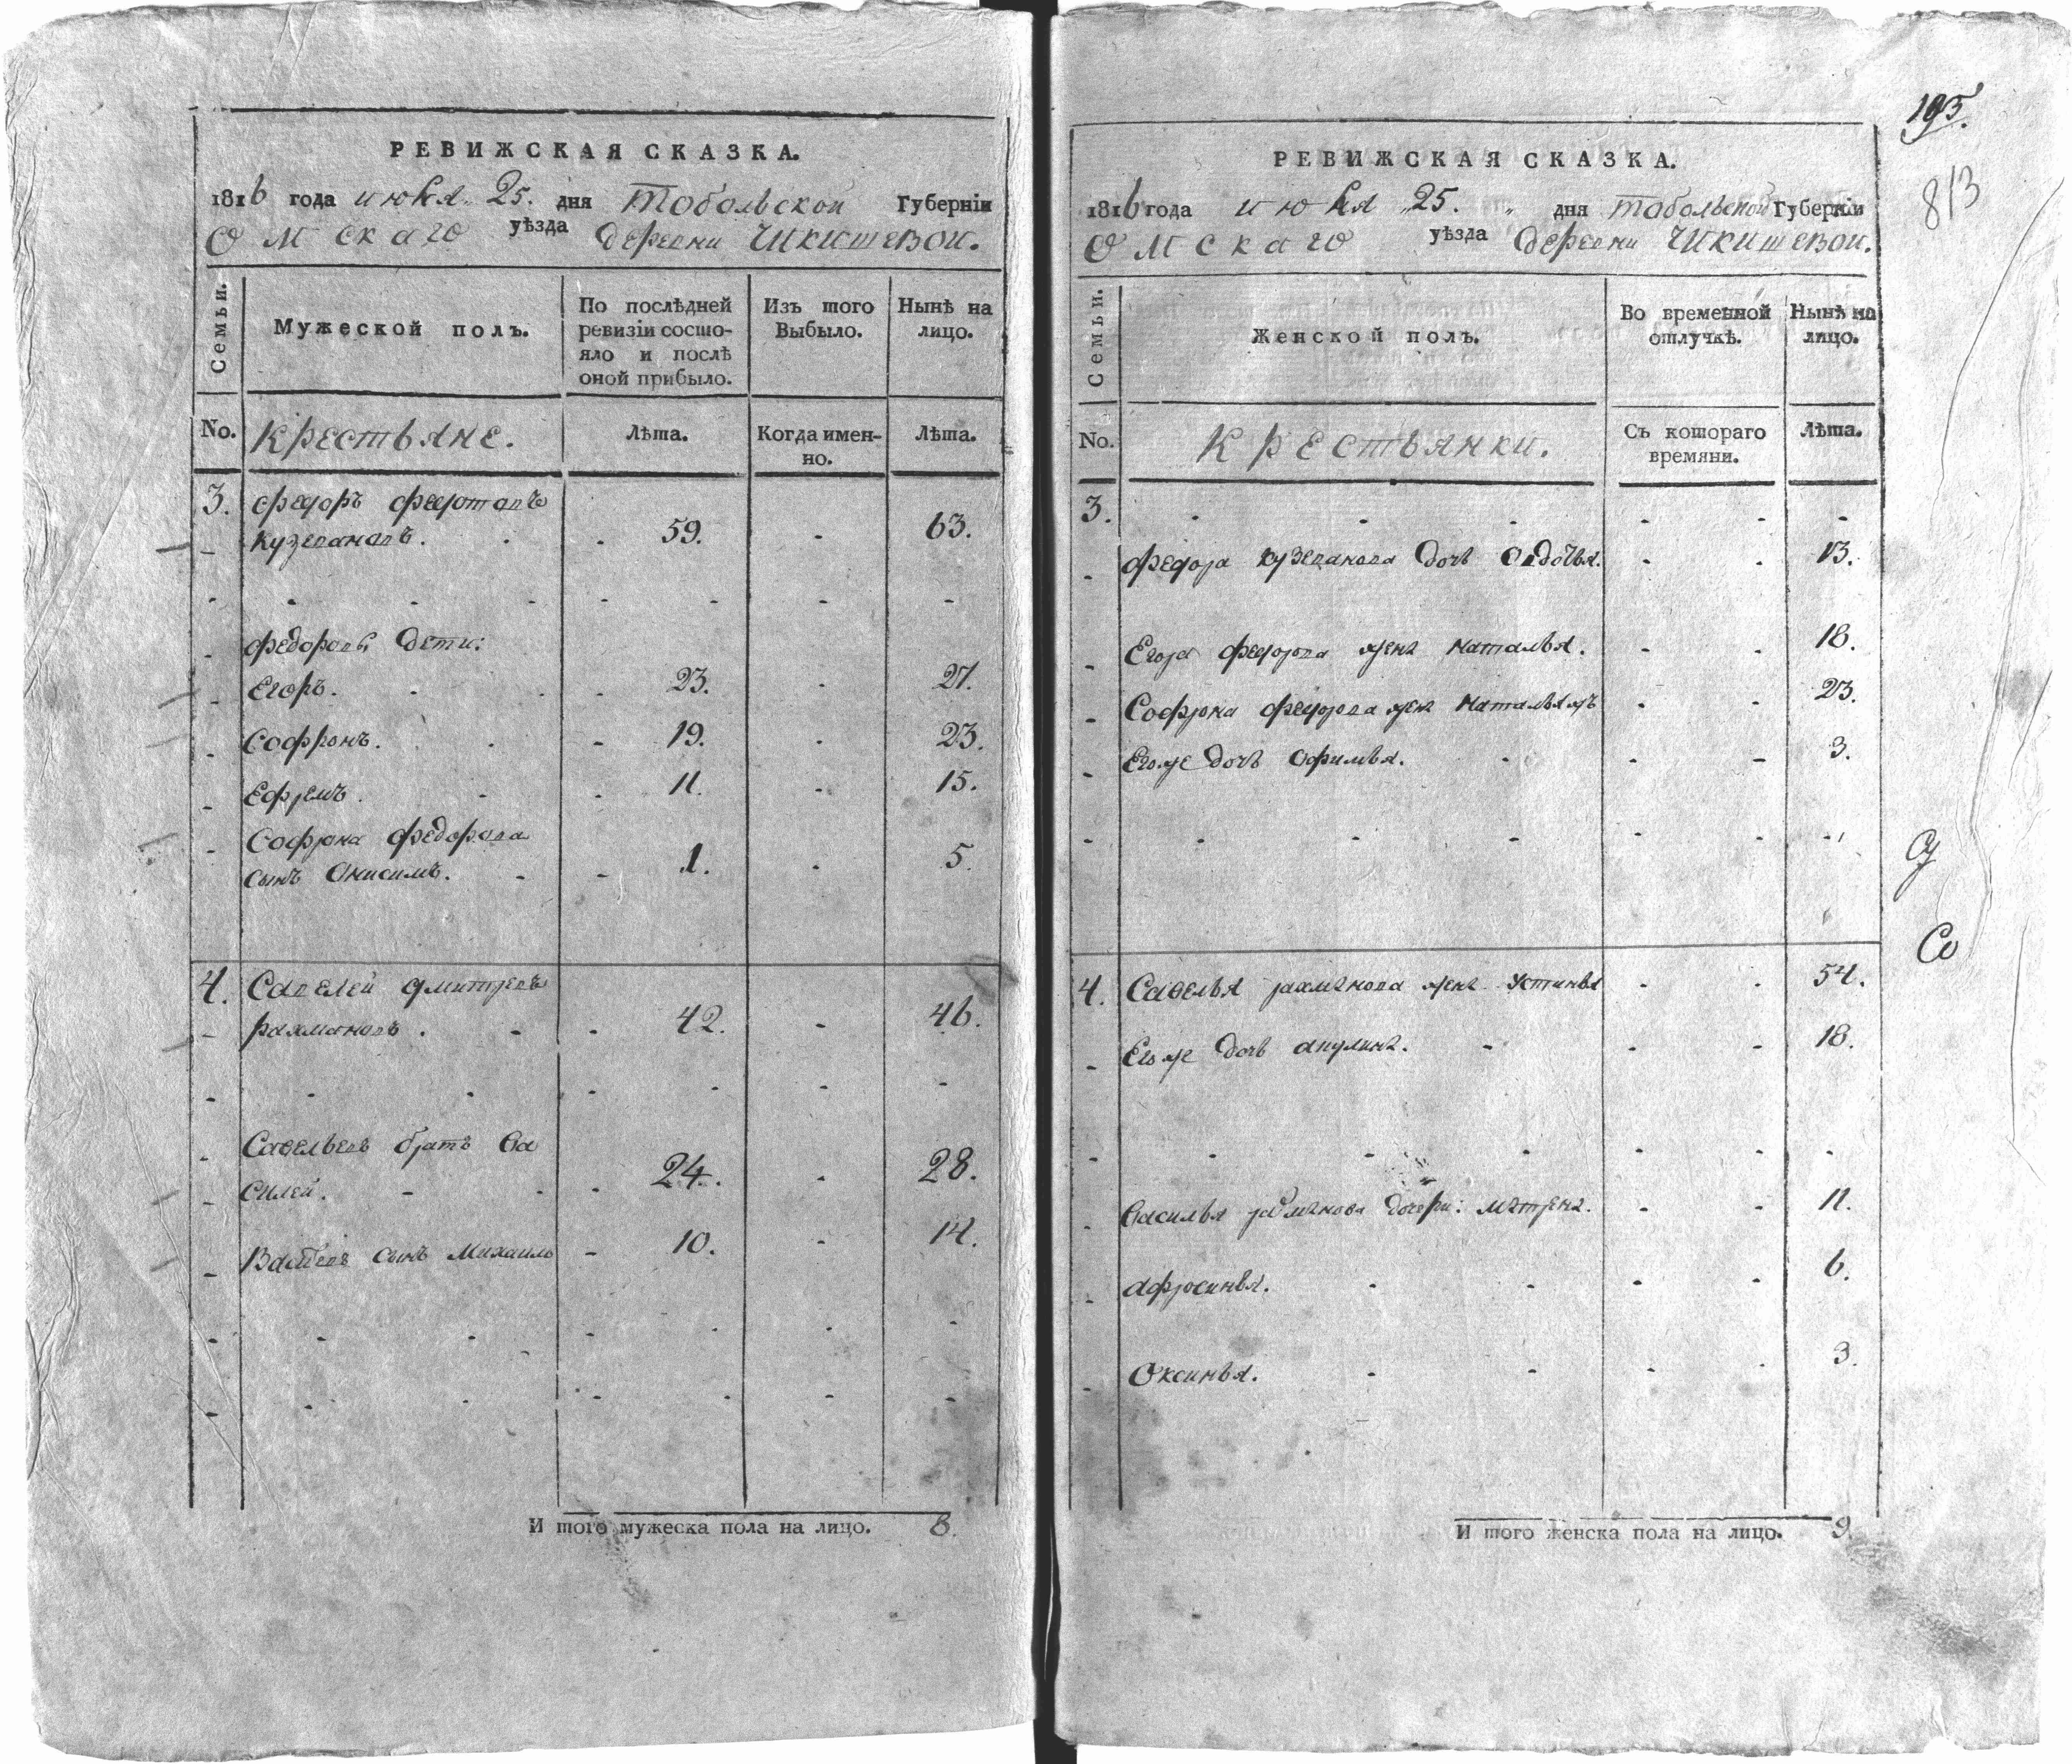 РЕВИЖСКАЯ СКАЗКА.
1816 года июля 25. дня Тобольской Губерніи
Омскаго уѣзда деревни Чикишевой.
Семьи.
Мужеской полъ.
По послѣдней
ревизіи состо-
яло и послѣ
оной прибыло.
Изъ того
Выбыло.
Нынѣ на
лицо.
No.
Крестьяне.
Лѣта.
Когда имен-
но.
Лѣта.
3. Федоръ Федотовъ
Кузевановъ. 59. 63.
Федоровы дети:
Егоръ. 23. 27.
Софронъ. 19. 23.
Ефремъ. 11. 15.
Софрона Федорова
сынъ Онисимъ. 1. 5.
4. Савелей Дмитревъ
Рахмановъ. 42. 46.
Савельевъ братъ Ва
силей. 24. 28.
сынъ Михаило 10. 14.
И того мужеска пола на лицо. 8.
195.
813
РЕВИЖСКАЯ СКАЗКА.
1816 года июля 25. дня Тобольской Губерніи
Омскаго уѣзда деревни Чикишевой.
Семьи.
Женской полъ.
Во временной
отлучкѣ.
Нынѣ на
лицо.
No.
Крестьянки.
Съ котораго
времяни.
Лѣта.
3.
Федора Кузеванова дочь Овдотья. 13.
Егора Федорова жена Наталья. 18.
Софрона Федорова жена Наталья жъ 23.
Его же дочь Офимья. 3.
4. Савелья Рахманова жена Устинья 54.
Его же дочь Акулина. 18.
Василья Рахманова дочери: Матрена. 11.
Афросинья. 6.
Оксинья. 3.
И того женска пола на лицо. 9.